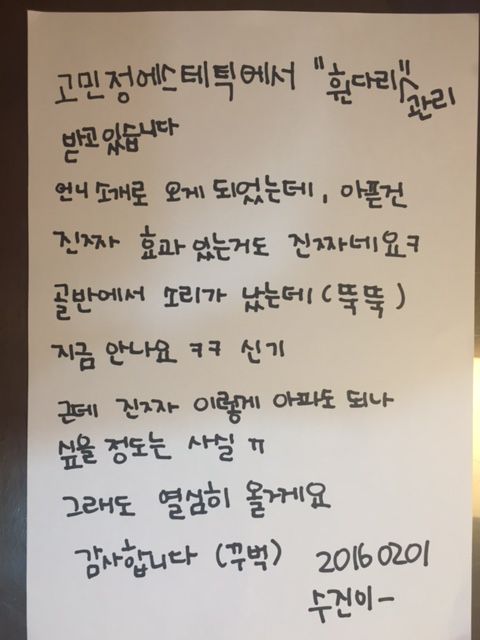 고민정에스테틱에서 "휜다리" 관리
받고있습니다
언니 소개로 오게 되었는데, 아픈건
진짜 효과 있는거도 진짜네요ㅋ
골반에서 소리가 났는데 (뚝뚝)
지금 안나요 ㅋㅋ 신기
근데 진짜 이렇게 아파도 되나
싶을 정도는 사실 ㅠ
그래도 열심히 올게요
감사합니다 (꾸벅) 20160201
수진이-